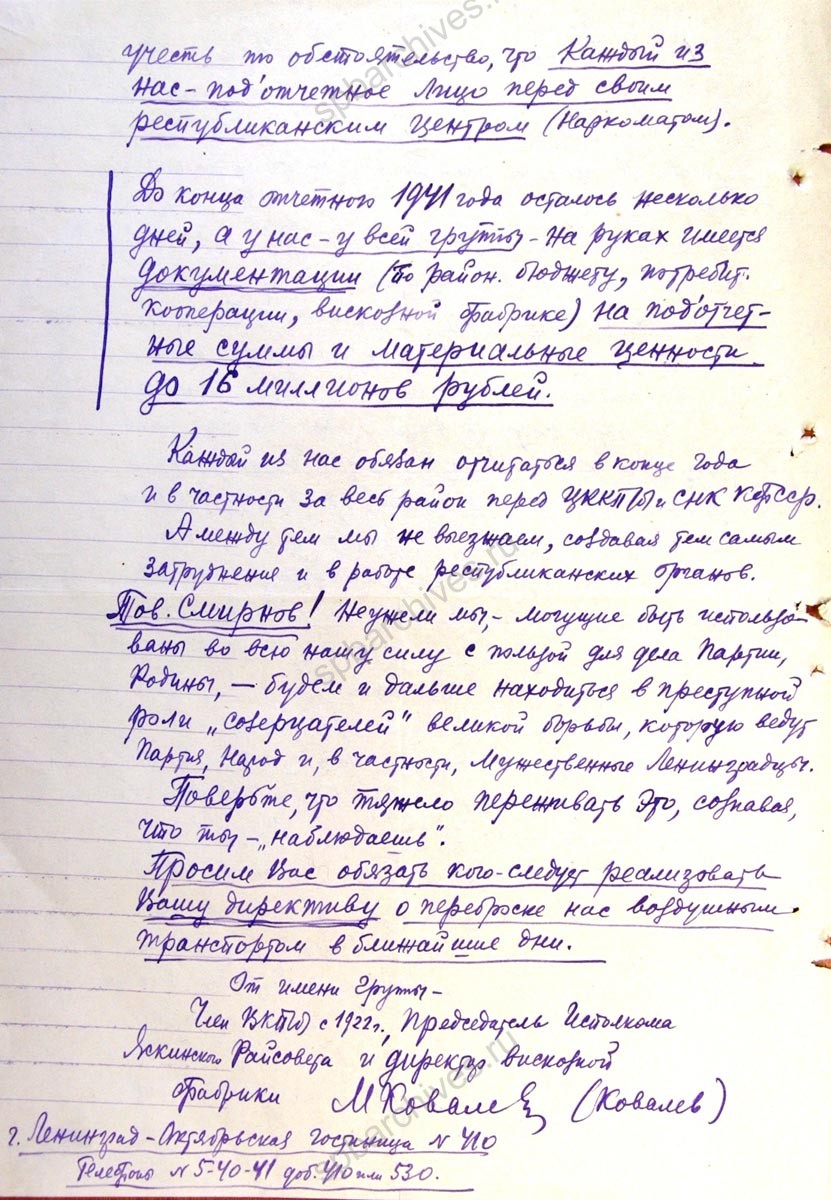 учесть то обстоятельство, что Каждый из
нас - под'отчетное лицо перед своим
республиканским центром (Наркоматом).
До конца отчетного 1941 года осталось несколько
дней, а у нас - у всей группы - на руках имеется
документации (по район. бюджету, потребит.
кооперации, вискозной фабрике) на под'отчет-
ные суммы и материальные ценности
до 16 миллионов рублей.
Каждый из нас обязан отчитаться в конце года
и в частности за весь район перед ЦККП(б) и СНК КФССР.
А между тем мы не выезжаем, создавая тем самым
затруднения и в работе республиканских органов.
Тов. Смирнов! Неужели мы, - могущие быть использо-
ваны во всю нашу силу с пользой для дела Партии,
Родины, - будем и дальше находиться в преступной
роли „созерцателей" великой борьбы, которую ведут
Партия, Народ и, в частности, Мужественные Ленинградцы.
Поверьте, что тяжело переживать это, сознавая,
что ты - „наблюдаешь".
Просим Вас обязать кого-следует реализовать
Вашу директиву о переброске нас воздушным
транспортом в ближайшие дни.
От имени группы -
Член ВКП(б) с 1922 г., Председатель Исполкома
Яскинского Райсовета и директор вискозной
фабрики МКовалев (Ковалев)
г. Ленинград - Октябрьская гостиница N 410
Телефоны N 5-40-41 доб. 410 или 530.
spbarchives.ru
spbarchives.ru
spbarchives.ru